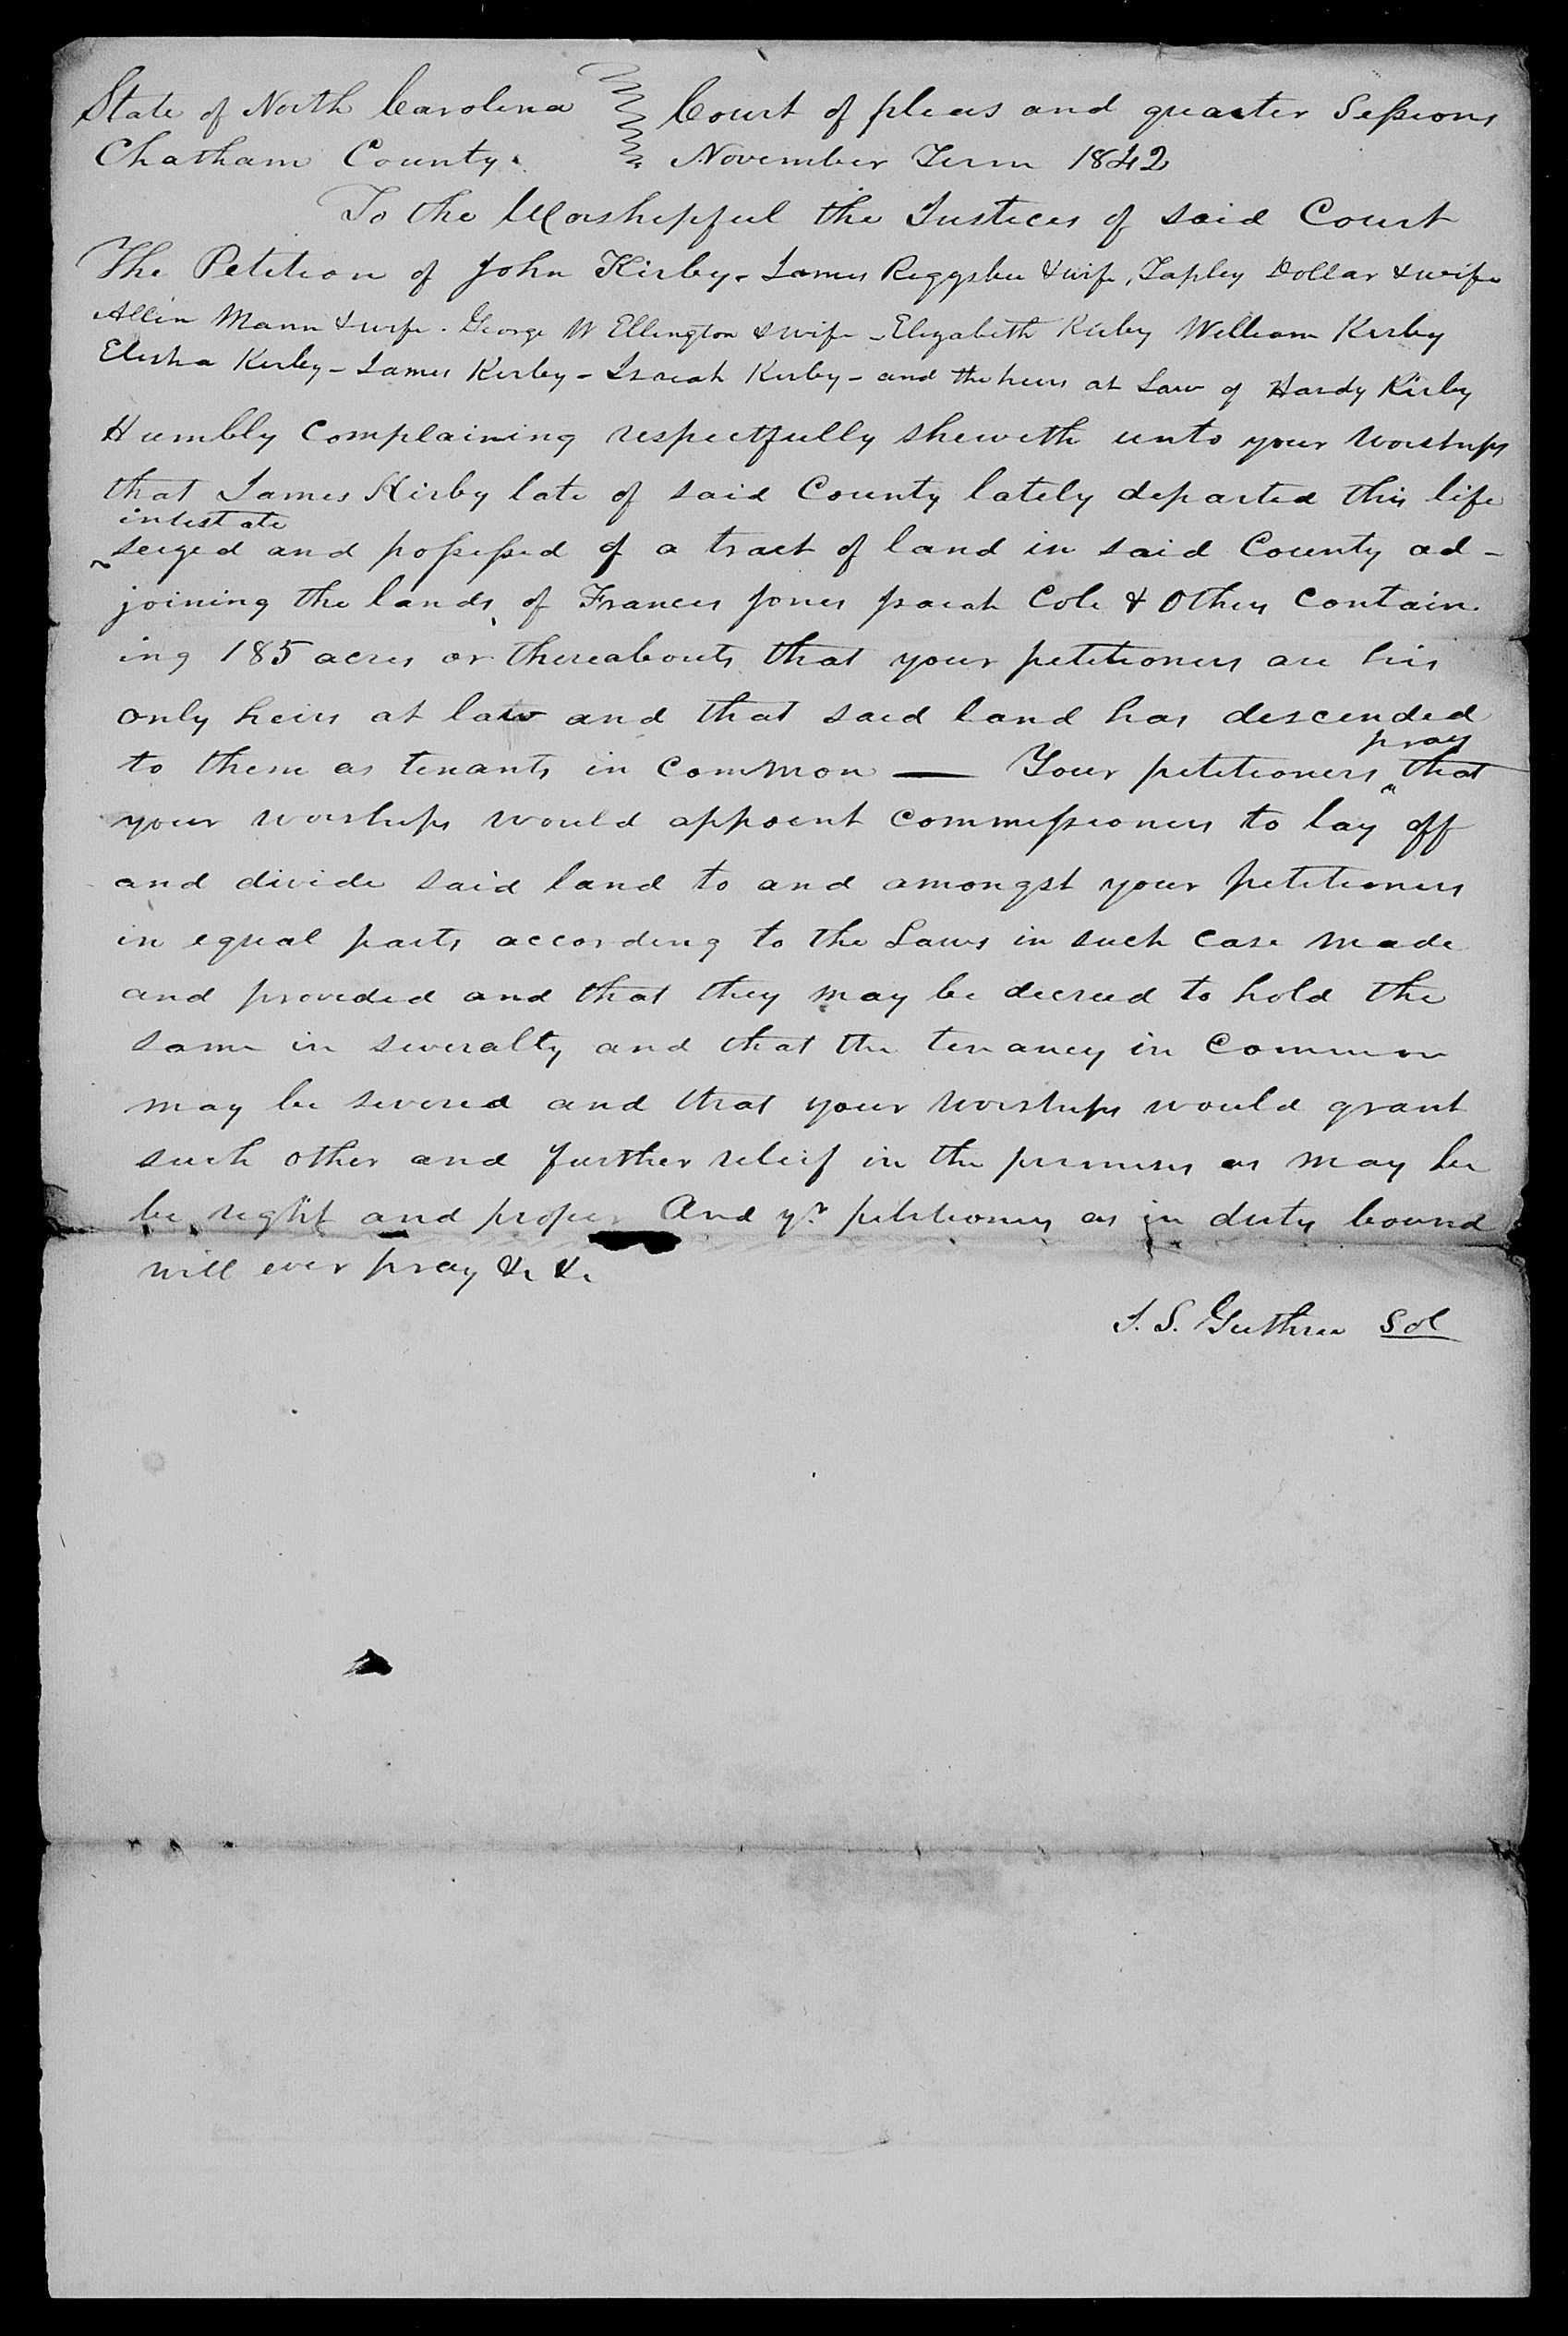 State of North Carolina Court of pleas and quarter Sessions
Chatham County. November Term 1842
To the Worshipful the Justices of said Court
The Petition of John Kirby - James Riggsbee & wife, Tapley Dollar & wife
Allen Mann & wife. George W Ellington & wife - Elizabeth Kirby William Kirby
Elisha Kirby - James Kirby - Isaiah Kirby - and the heirs at Law of Hardy Kirby
Humbly complaining respectfully sheweth unto your worships
that James Kirby late of said County lately departed this life
intestate
seized and possessed of a tract of land in said County ad-
joining the lands of Frances Jones Isaiah Cole & Others contain-
ing 185 acres or thereabouts that your petitioners are his
only heirs at law and that said land has descended
pray
to them as tenants in common — Your petitioners that
your worships would appoint commissioners to lay off
and divide said land to and amongst your petitioners
in equal parts according to the Laws in such case made
and provided and that they may be decreed to hold the
same in severalty and that the tenancy in common
may be severed and that your worships would grant
such other and further relief in the premises as may be
be right and proper And yr. petitioners as in duty bound
will ever pray &c &c
J. S. Guthrie Sol